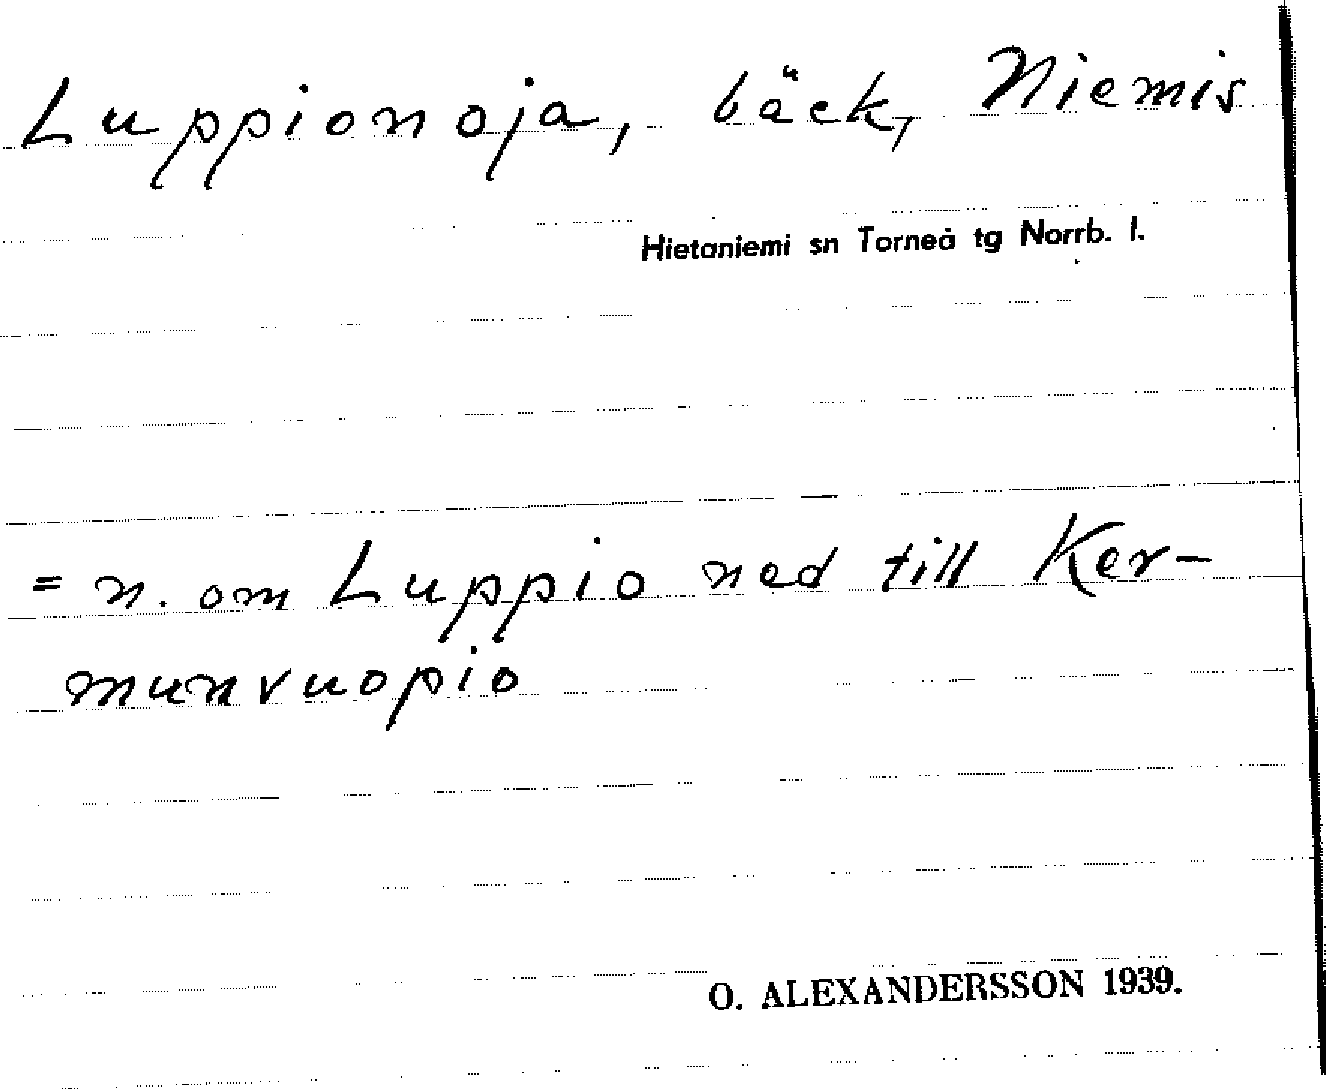 Luppionoja, bäck, Niemis
Hietaniemi sn Torneå tg Norrb. l.
= n. om Luppio ned till Ker-
munvuopio
O. ALEXANDERSSON 1939.